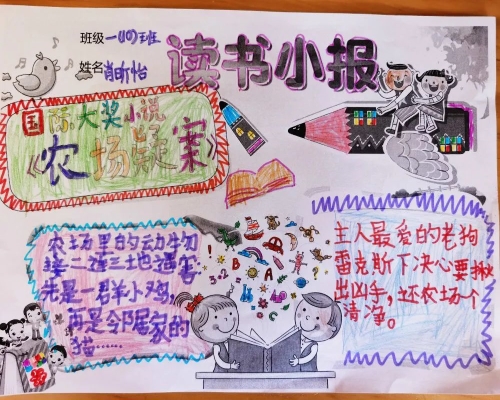 读书小报
班级一(10)班
姓名肖昕怡
国际大奖小说
《农场疑案》
农场里的动物
接二连三地遇害
先是一群羊小鸡,
再是邻居家的
猫……
主人最爱的老狗
雷克斯下决心要揪
出凶手,还农场一个
清净。